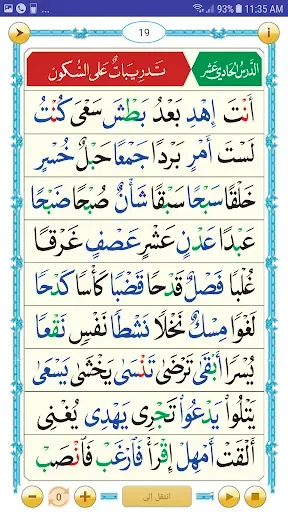 93% 11:35 AM
19
الدرس الحادي عشر
تدريبات على السكون
أَنْتَ إِهْدِ بَعْدُ بَطْشَ سَعْىَ كُنْتُ
لَسْتَ أَمْرٍ بَرْدًا جَمْعًا حَبْلٌ خُسْرٍ
خَلْقًا سَبْحًا سَبْقًا شَأْنٌ صُبْحًا ضَبْحًا
عَبْدًا عَدْنٍ عَشْرٍ عَصْفٍ غَرْقًا
غُلْبًا فَصْلٌ قَدْحًا قَضْبًا كَأْسًا كَدْحًا
لَغْوًا مِسْكٌ نَخْلًا نَشْطًا نَفْسٍ نَقْعًا
يُسْرًا أَبْقَى تَرْضَى تَنْسَى يَخْشَى يَسْعَى
يَتْلُوا يَدْعُوا تَجْرِى يَهْدِى يُغْنِى
أَلْقَتْ أَمْهِلْ إِقْرَأْ فَارْغَبْ فَانْصَبْ
0
انتقل إلى